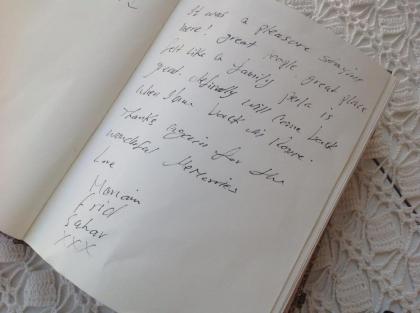 It was a pleasure staying
here! great people great place
felt like a family perla is
great. definetly will come back
when I am back in Rome.
Thanks again for the
wonderful Memories
Love
Mariam
Frid
Sahar
XXX